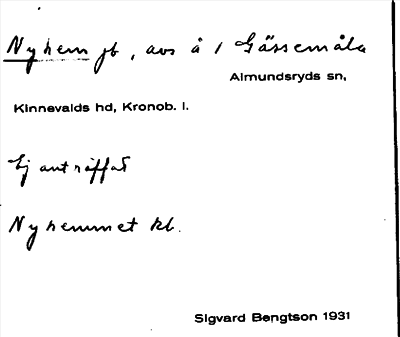 Nyhem jb, avs å 1 Gässemåla
Almundsryds sn,
Kinnevalds hd, Kronob. l.
Ej anträffat
Nyhemmet kl.
Sigvard Bengtson 1931